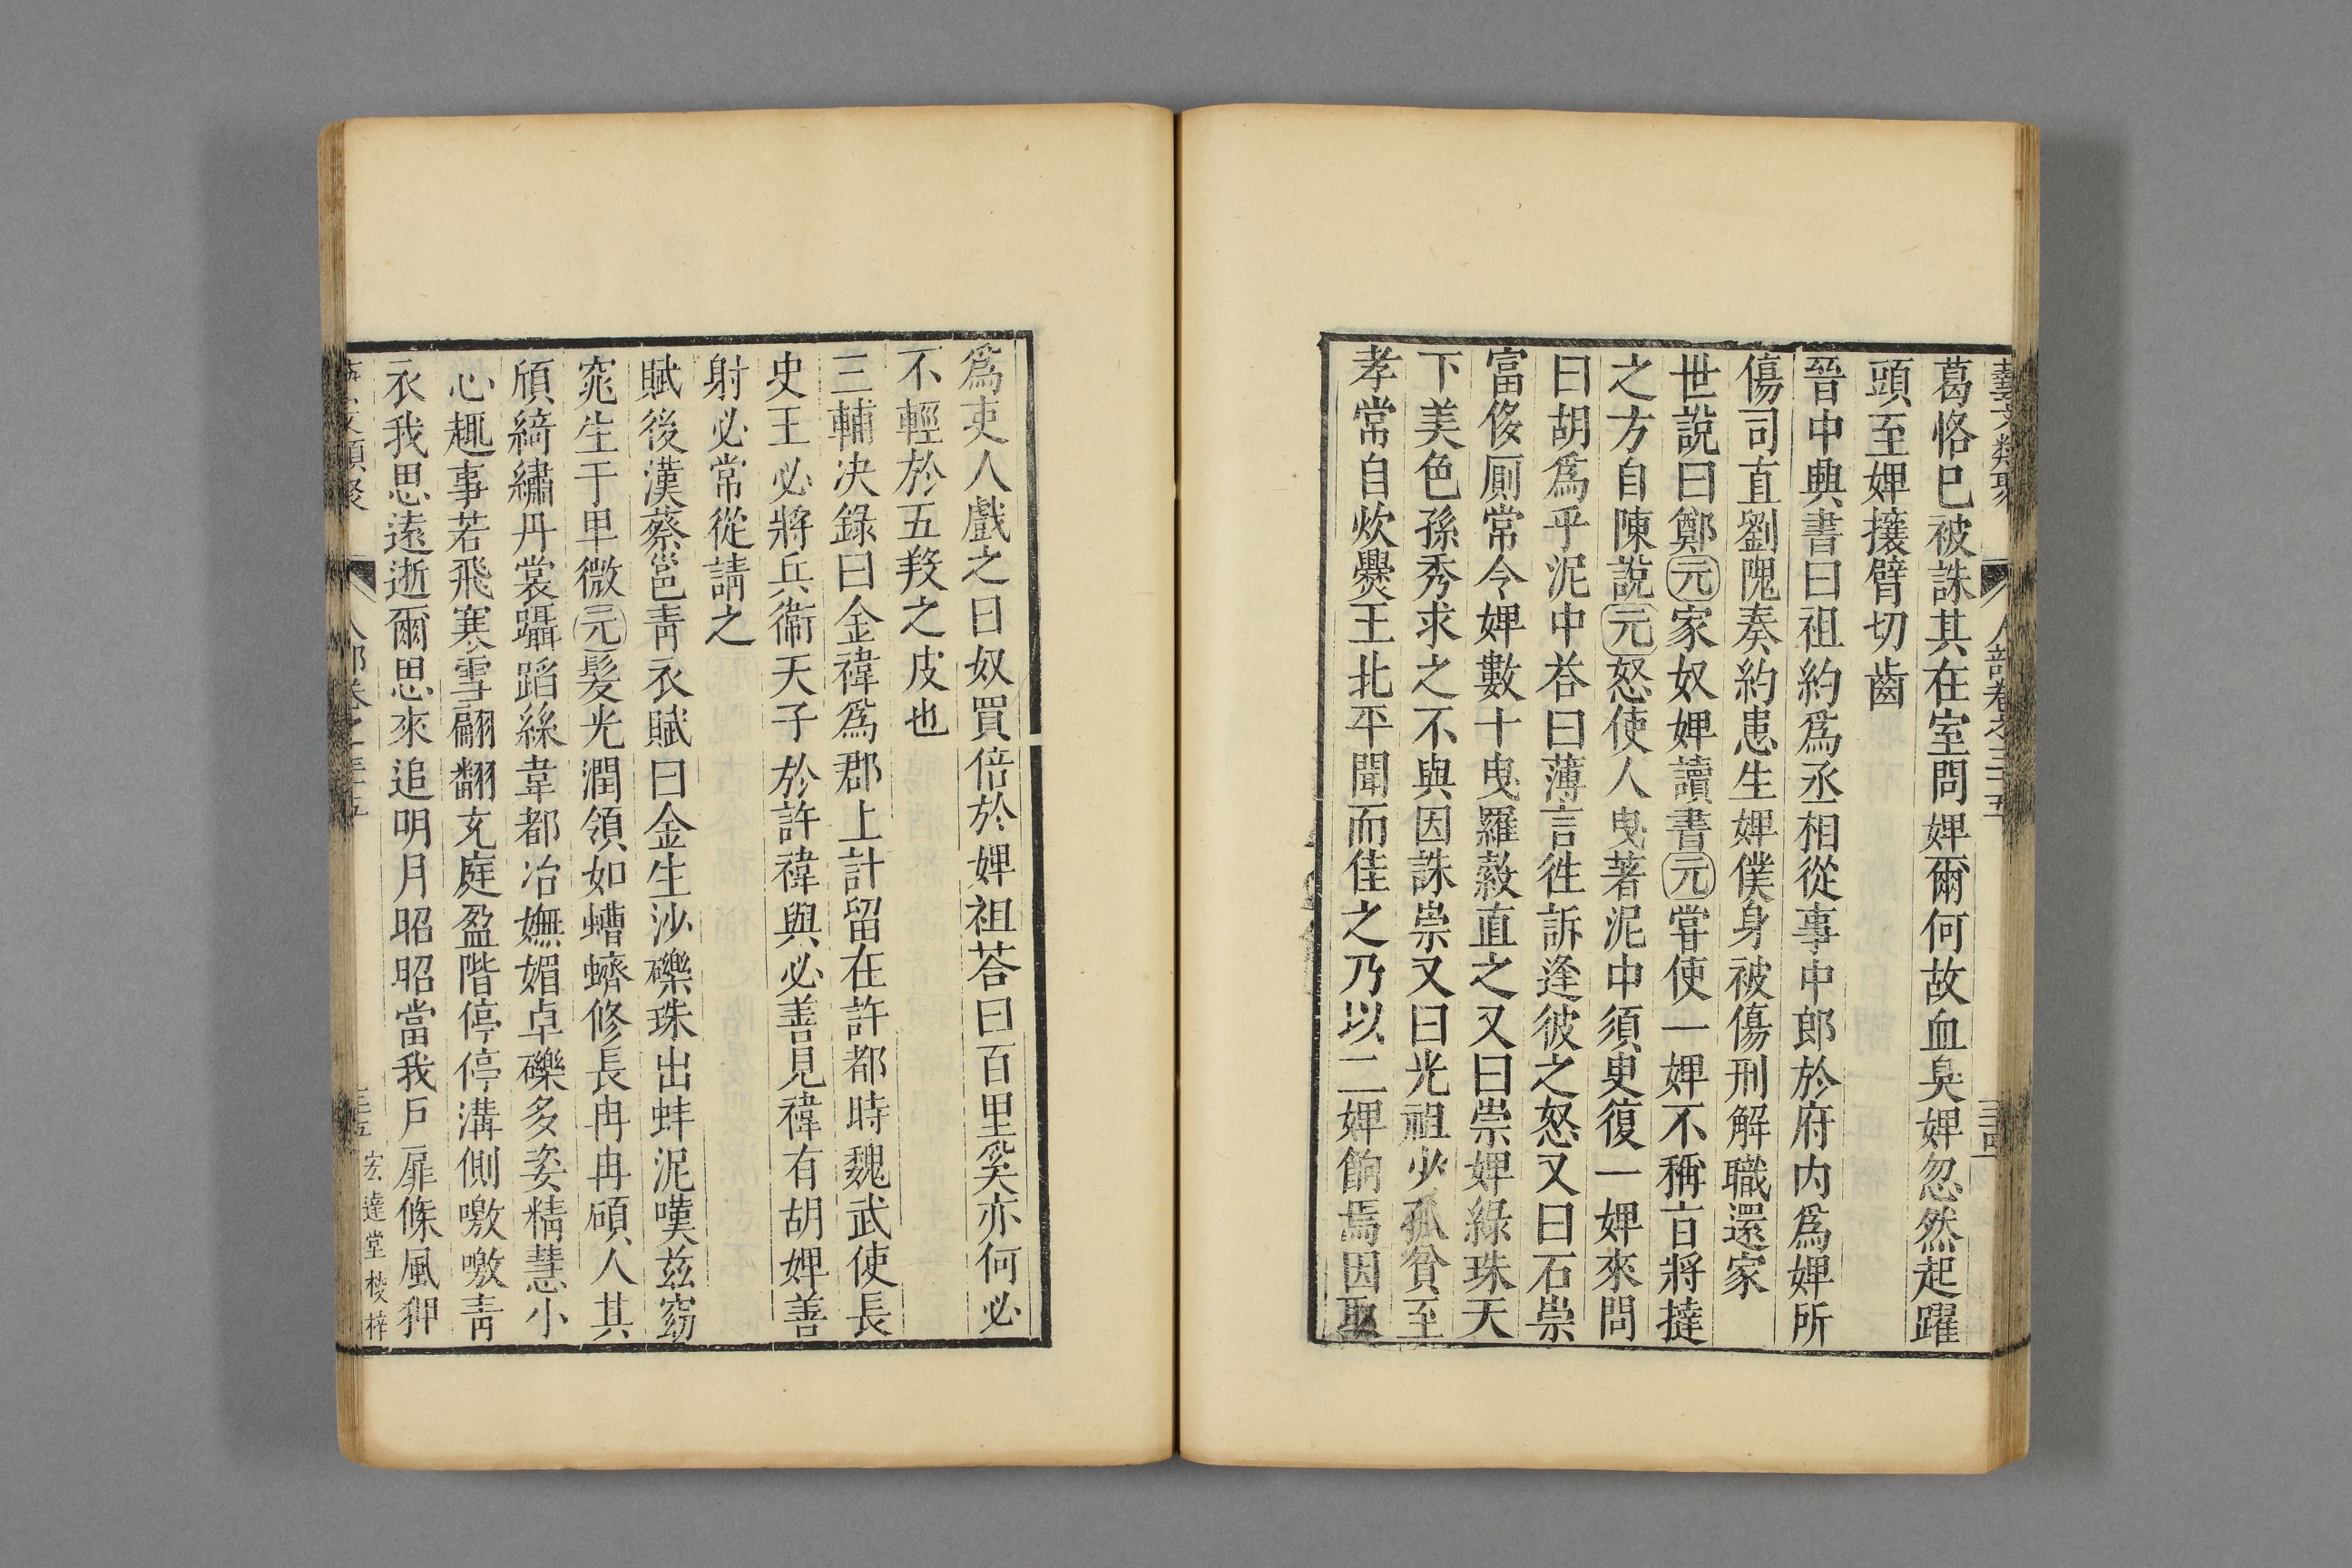 藝文類聚 人部卷之三十五 三四
葛恪已被誅其在室問婢爾何故血臭婢忽然起躍
頭至婢攘臂切齒
晉中興書曰祖約爲丞相從事中郎於府内爲婢所
傷司直劉隗奏約患生婢僕身被傷刑解職還家
世說曰鄭元家奴婢讀書元甞使一婢不稱㫖將撻
之方自陳說元怒使人曳著泥中須㬰復一婢來問
曰胡爲乎泥中荅曰薄言徃訴逢彼之怒又曰石崇
富侈厠常令婢數十曳羅縠直之又曰崇婢綠珠天
下美色孫秀求之不與因誅崇又曰光祖少孤貧至
孝常自炊爨王北平聞而佳之乃以二婢餉焉因取
爲吏人戲之曰奴買倍於婢祖荅曰百里奚亦何必
不輕於五羖之皮也
三輔决錄曰金禕爲郡上計留在許都時魏武使長
史王必將兵衞天子於許禕與必善見禕有胡婢善
射必常從請之
賦後漢蔡邕靑衣賦曰金生沙礫珠出蚌泥嘆兹窈
窕生于卑微元髮光潤領如螬蠐修長冉冉碩人其
頎綺繡丹裳躡蹈絲韋都冶嫵媚卓礫多姿精慧小
心趣事若飛寒雪翩翻充庭盈階停停溝側噭噭靑
衣我思遠逝爾思來追明月昭昭當我戸扉條風狎
藝文類聚 人部卷之三十五 三五 宏達堂校梓